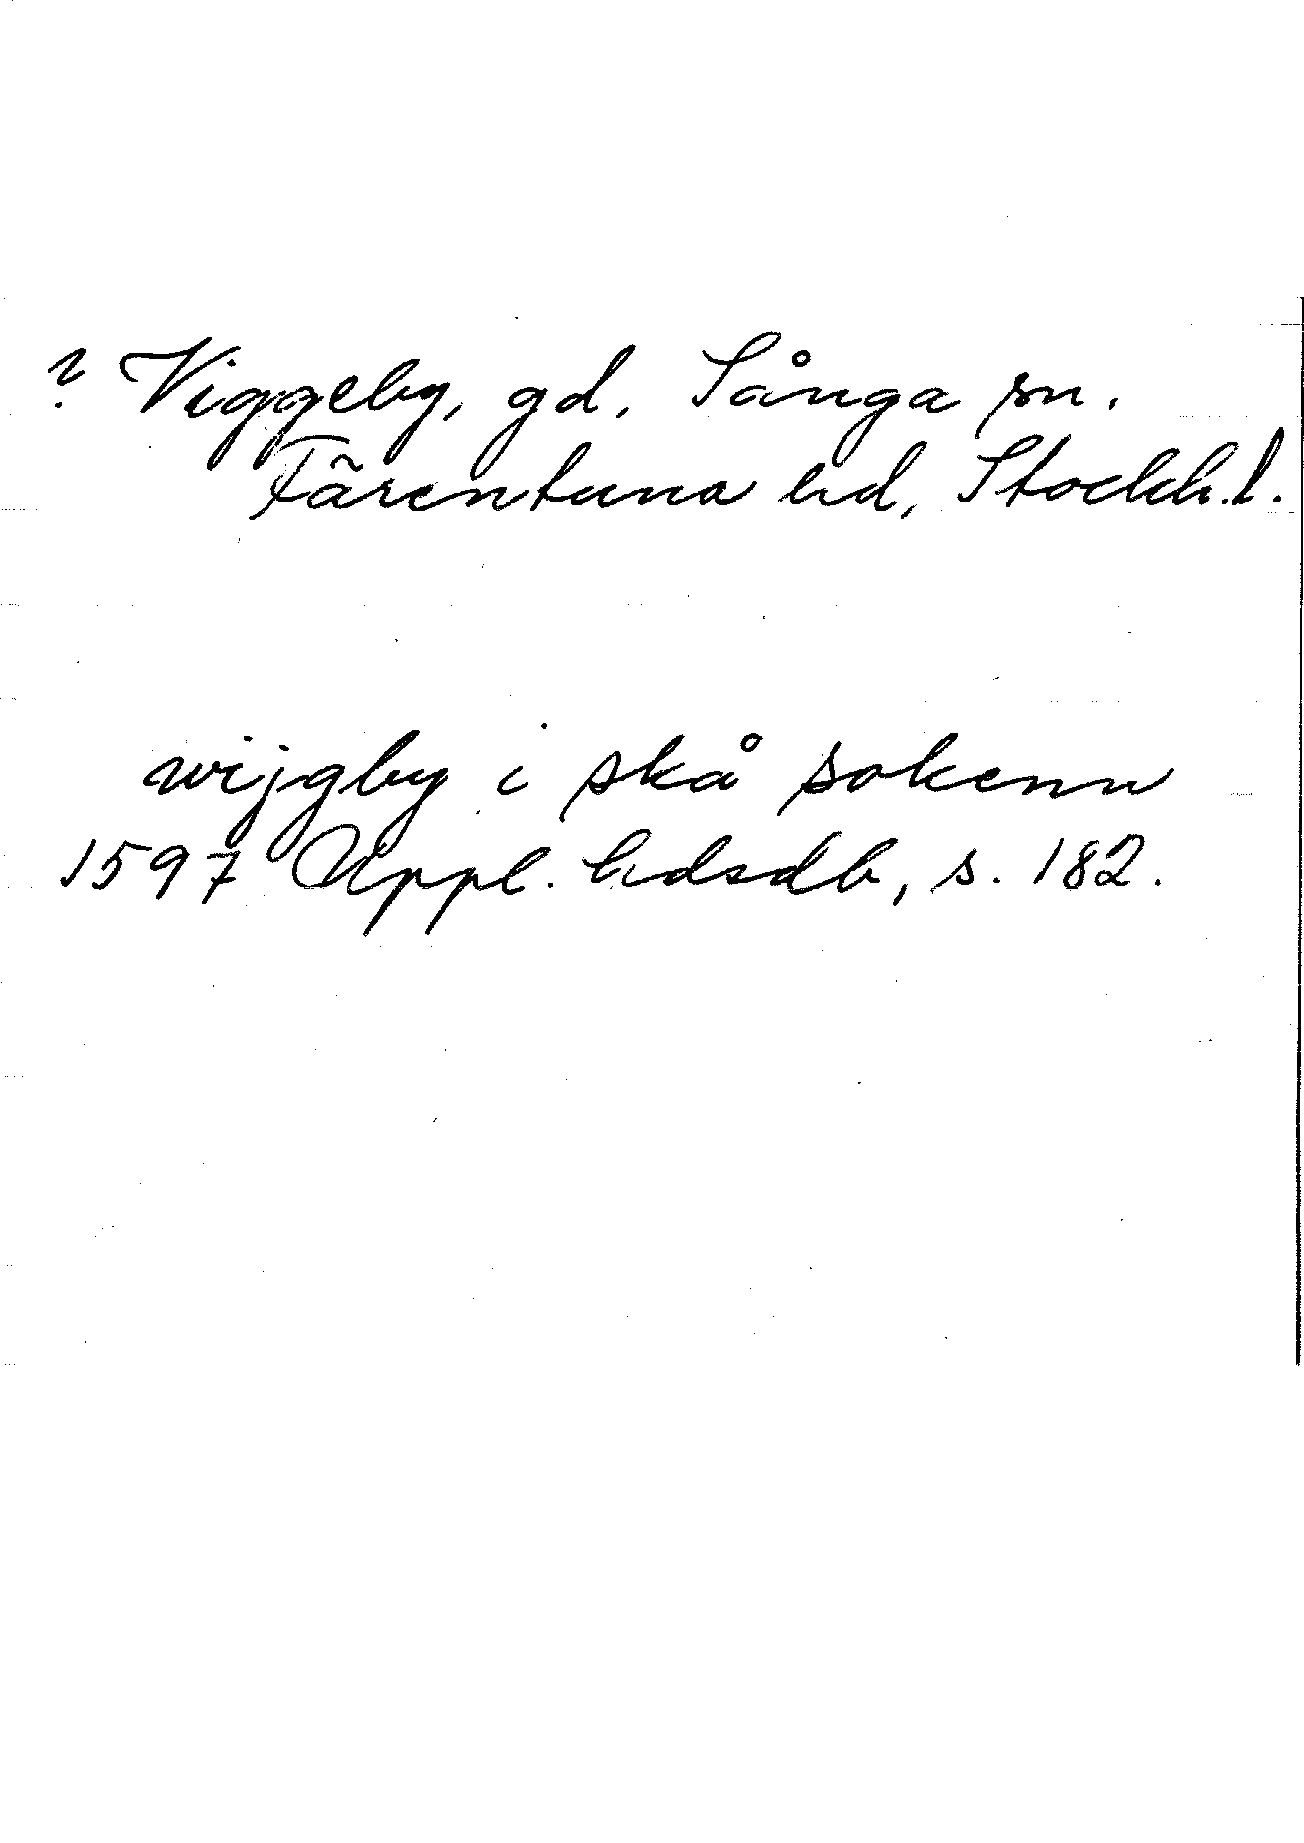 ? Viggeby, gd, Sånga sn.
Färentuna hd, Stockh.l.
wijgby i skå sokenn
1597 Uppl. hdsdb, s. 182.